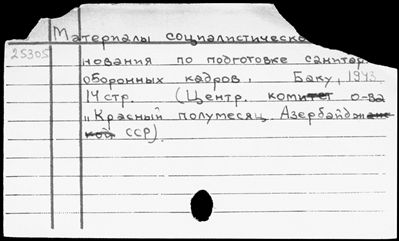 Материалы социалистическо
25305 нования по подготовке санитар
оборонных кадров. Баку, 1943.
14 стр. (Центр. комитет о-ва
„Красный полумесяц Азербайджан
кой ССР).